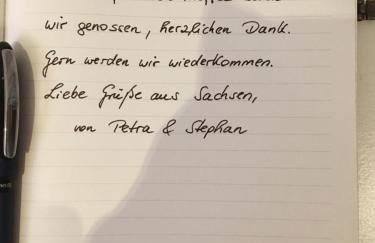 wir genossen, herzlichen Dank.
Gern werden wir wiederkommen.
Liebe Grüße aus Sachsen,
von Petra & Stephan